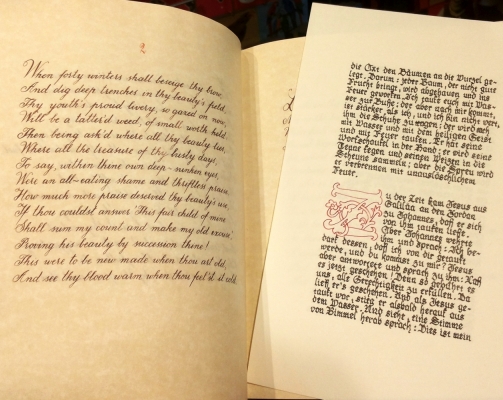 2
When forty winters shall beseige thy brow,
And dig deep trenches in thy beauty's field,
Thy youth's proud livery, so gazed on now,
Will be a tatter'd weed, of small worth held:
Then being ask'd where all thy beauty lies,
Where all the treasure of thy lusty days,
To say, within thine own deep-sunken eyes,
Were an all-eating shame and thriftless praise.
How much more praise deserved thy beauty's use,
If thou couldst answer 'This fair child of mine
Shall sum my count and make my old excuse,'
Proving his beauty by succession thine!
This were to be new made when thou art old,
And see thy blood warm when thou feel'st it cold.
die Axt den Bäumen an die Wurzel ge-
legt. Darum: jeder Baum, der nicht gute
Frucht bringt, wird abgehauen und ins
Feuer geworfen. Ich taufe euch mit Was-
ser zur Buße; der aber nach mir kommt,
ist stärker als ich, und ich bin nicht wert,
ihm die Schuhe zu tragen; der wird euch
mit Wasser und mit dem heiligen Geist
und mit Feuer taufen. Er hat seine
Worfschaufel in der Hand; er wird seine
Tenne fegen und seinen Weizen in die
Scheune sammeln; aber die Spreu wird
er verbrennen mit unauslöschlichem
Feuer.
Zu der Zeit kam Jesus aus
Galiläa an den Jordan
zu Johannes, daß er sich
von ihm taufen ließe.
Aber Johannes wehrte
ihm und sprach: Ich be-
darf dessen, daß ich von dir getauft
werde, und du kommst zu mir? Jesus
aber antwortete und sprach zu ihm: Laß
es jetzt geschehen! Denn so gebührt es
uns, alle Gerechtigkeit zu erfüllen. Da
ließ er's geschehen. Und als Jesus ge-
tauft war, stieg er alsbald herauf aus
dem Wasser. Und siehe, eine Stimme
vom Himmel herab sprach: Dies ist mein